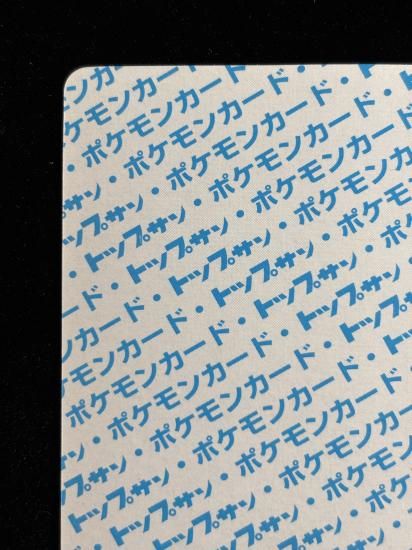 ンカード
ケモンカード・
・ポケモンカード・
プサン・ポケモンカード・ト
トップサン・ポケモンカード・
トップサン・ポケモンカード
・トップサン・ポケモンカ
ード・トップサン・ポケモン
カード・トップサン・ポケ
モンカード・トップサン・
ケモンカード・トップサン
・ポケモンカード・トップ
サン・ポケモンカード・ト
トップサン・ポケモンカード
トップサン・ポケモンカ
トップサン・ポケモン